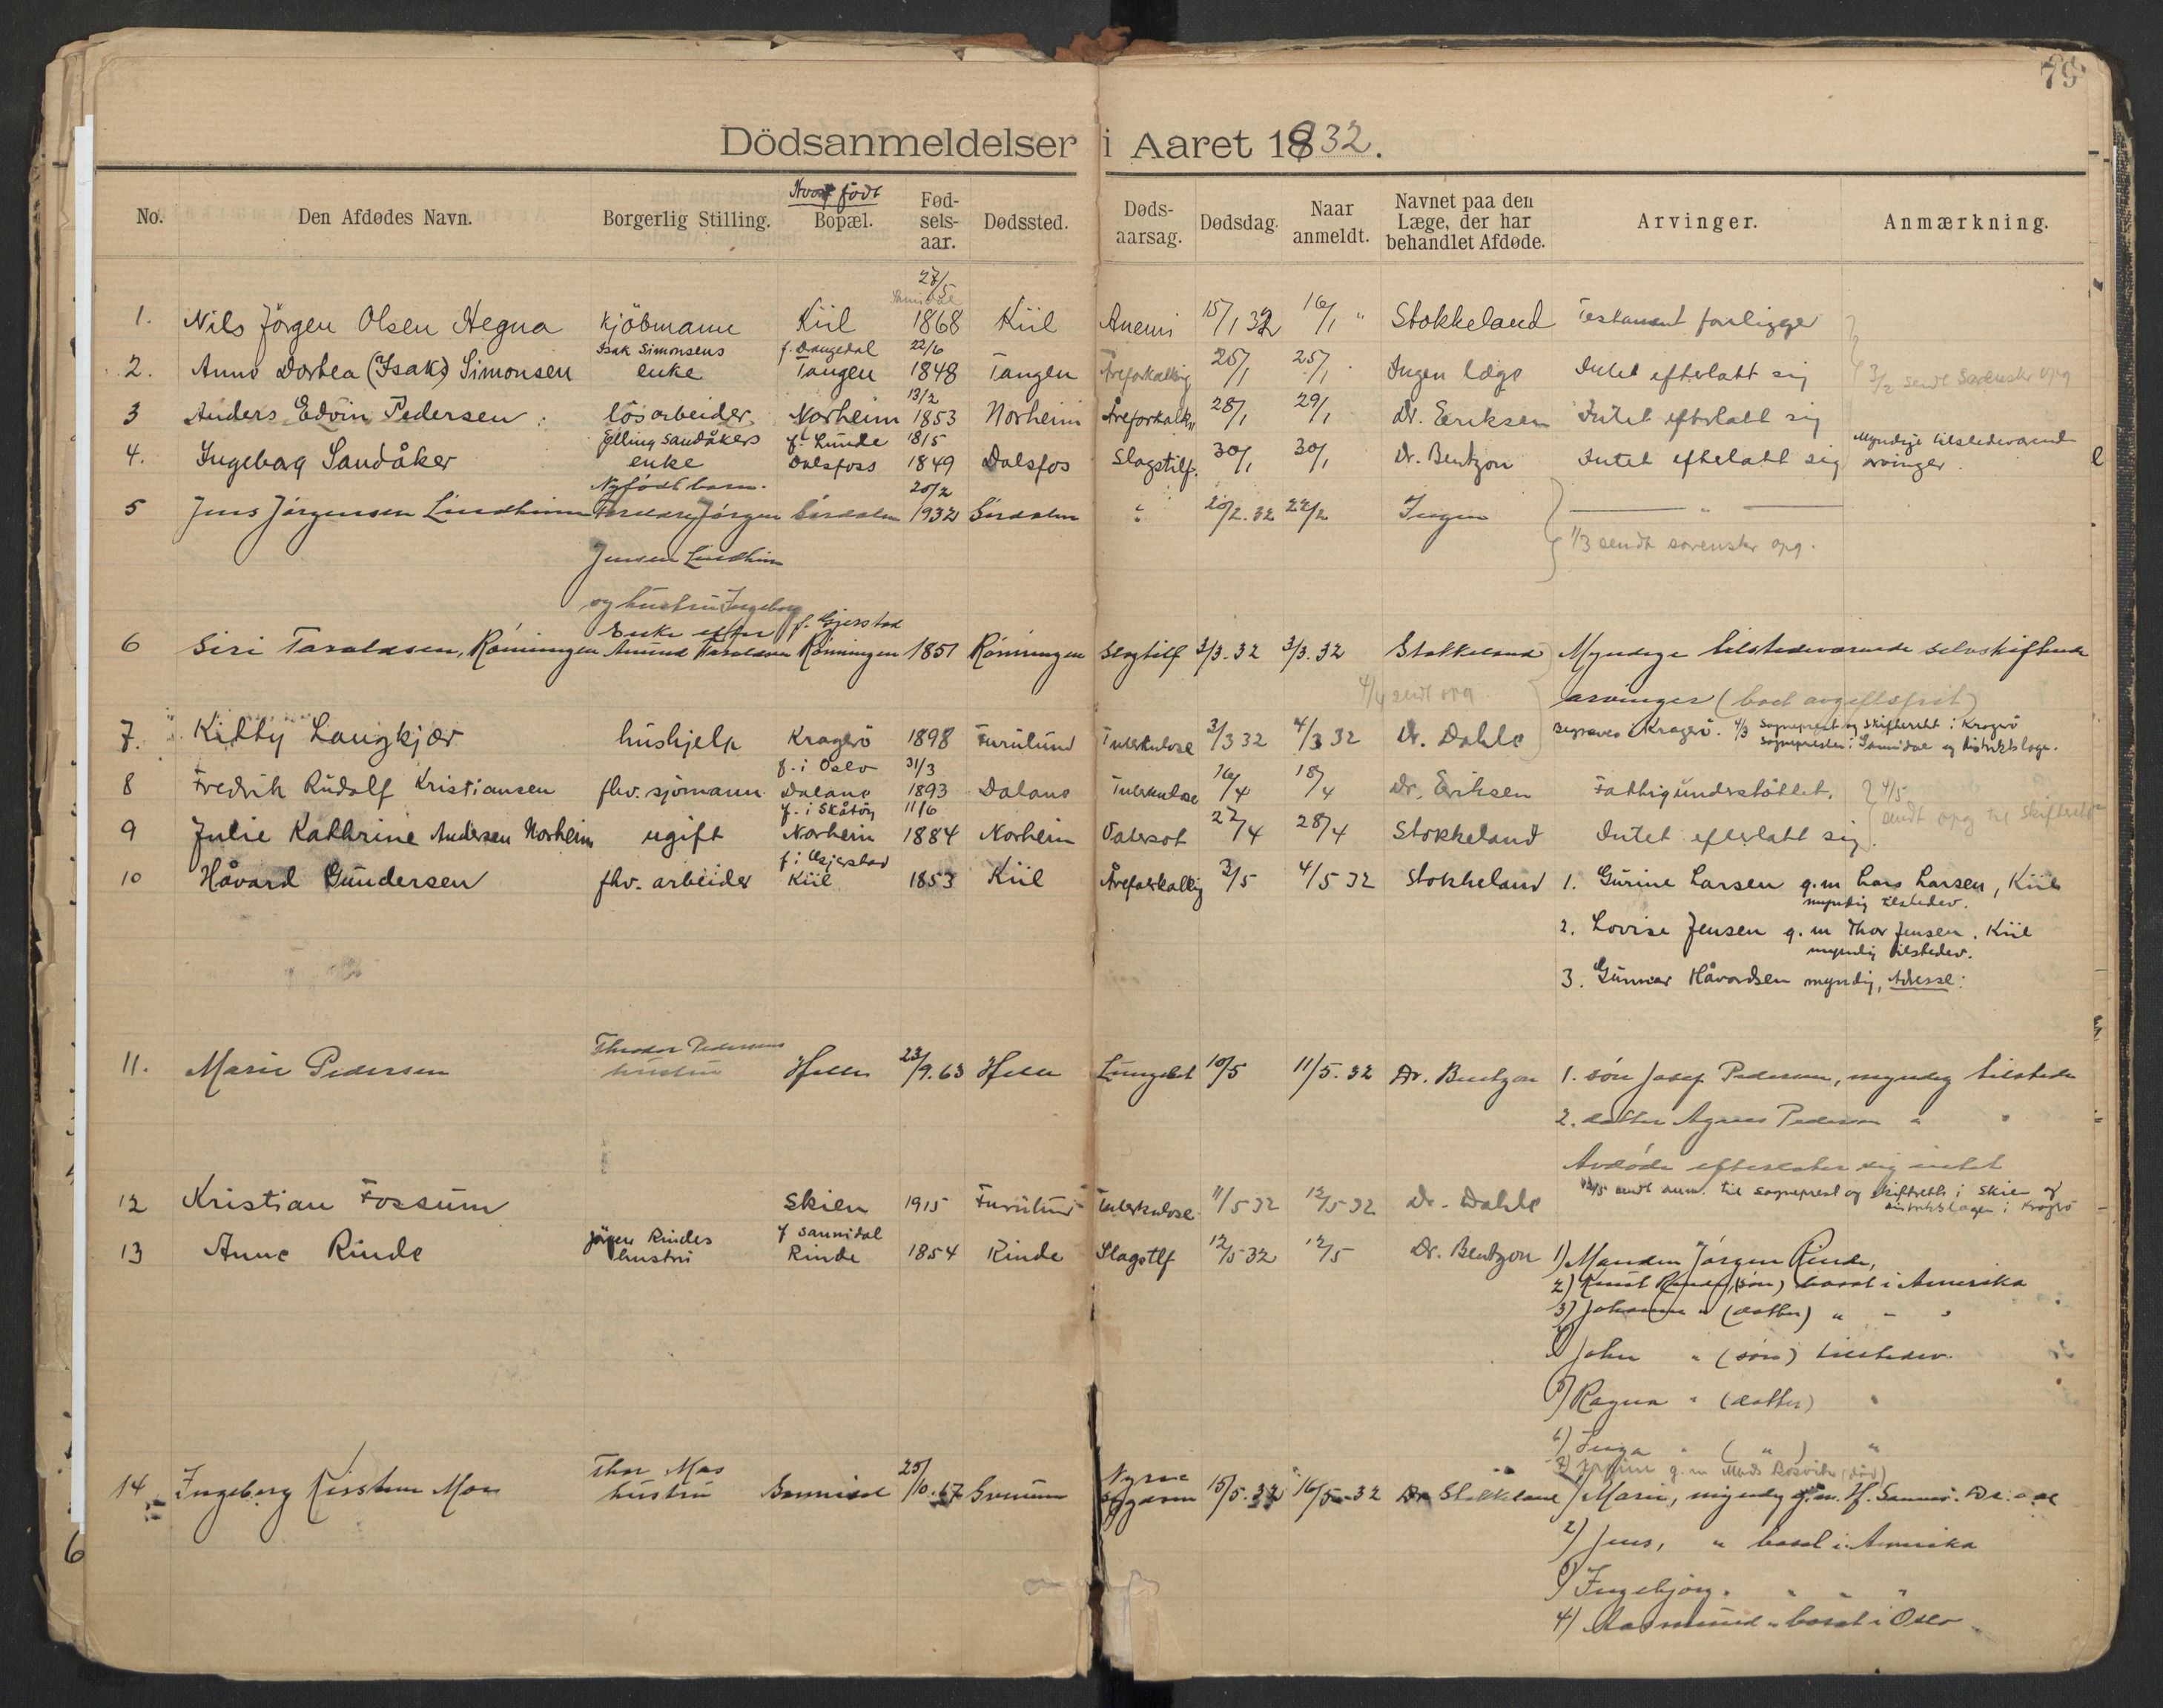 79
Dödsanmeldelser i Aaret 1932.
No. Den Afdødes Navn. Borgerlig Stilling. Hvor født Bopæl. Fød-sels-aar. Dødssted. Døds-aarsag. Dødsdag. Naar anmeldt. Navnet paa den Læge, der har behandlet Afdøde. Arvinger. Anmærkning.
27/5
1. Nils Jörgen Olsen Hegna kjöbmann Kiil 1868 Kiil Anemi 15/1 32 16/1 " Stokkeland Testament foreligger
Isak Simonsens f. Drangedal 22/6
2. Anne Dorthea (Isak) Simonsen enke Tangen 1848 Tangen Åreforkalkng 25/1 25/1 Ingen læge Intet efterlatt sig 3/2 sendt sorenskr opg
13/2
3 Anders Edvin Pedersen lösarbeider Norheim 1853 Norheim Åreforkalk 28/1 29/1 Dr. Eriksen Intet efterlatt sig
Elling Sandåkers f. Lunde 18/5
4. Ingeborg Sandåker enke Dalsfoss 1849 Dalsfos Slagtilf. 30/1 30/1 Dr. Bentzon Intet efterlatt sig Myndige tilstedeværend arvinger.
Nyfödt barn. 20/2
5 Jens Jörgensen Lindheim Foreldre Jörgen Sördalen 1932 Sördalen " 20/2.32 22/2 Ingen "
Jensen Lindheim 1/3 sendt sorenskr opg.
og hustru Ingeborg
Enke efter f. Gjerstad
6 Siri Taraldsen, Rönningen Amund Taraldsen Rönningen 1851 Rönningen Slagtilf 3/3.32 3/3.32 Stokkeland Myndige tilstedeværende selvskiftende
4/4 sendt opg. arvinger (boet avgiftsfrit)
7. Kitty Langkjær hushjelp Kragerö 1898 Furulund Tuberkulose 3/3 32 4/3 32 Dr. Dahle Begraves i Kragerö. 4/3 Sogneprest og skifterett i Kragerö
sognepresten i Sannidal og distriktslæge.
f. i Oslo 31/3
8 Fredrik Rudolf Kristiansen fhv. sjömann Dalane 1893 Dalane Tuberkulose 16/4 18/4 Dr. Eriksen Fattigunderstöttet. 4/5
f. i Skåtöy 11/6 sendt opg til skifterett
9 Julie Kathrine Andersen Norheim ugift Norheim 1884 Norheim Vatersot 27/4 28/4 Stokkeland Intet efterlatt sig.
f. i Gjerstad
10 Håvard Gundersen fhv. arbeider Kiil 1853 Kiil Åreforkalkng 3/5 4/5 32 Stokkeland 1. Gurine Larsen g.m Lars Larsen, Kiil
myndig tilstedev.
2. Lovise Jensen g.m Thor Jensen. Kiil
myndig tilstedev.
3. Gunnar Håvardsen myndig, Adresse:
Theodor Pedersens
11. Marie Pedersen hustru Helle 23/9.63 Helle Lungebet 10/5 11/5.32 Dr. Bentzon 1. sön Josef Pedersen, myndig tilstede
2. datter Agnes Pedersen " "
Avdöde efterlater sig intet
12 Kristian Fossum Skien 1915 Furulund Tuberkulose 11/5 32 12/5 32 Dr. Dahle 12/5 sendt anm. til sogneprest og skifterett i Skien og
distriktslægen i Kragerö
Jörgen Rindes f Sannidal
13 Anne Rinde hustru Rinde 1854 Rinde Slagtlf 12/5 32 12/5 Dr. Bentzon 1) Manden Jörgen Rinde,
2) Knut Rinde (sön) bosat i Amerika
3) Johanne " (datter) " " "
4) John " (sön) tilstedev.
5) Ragna " (datter) "
6) Inga " ( " ) "
7) g.m Mads (död)
Thor Moes
14 Ingeborg Moe hustru Sannidal 25/10.67 Nyresygdom 15/5.32 16/5.32 Dr Stokkeland 1) Marie, myndig g.m. H.
2) Jens, " bosat i Amerika
3) Ingebjörg " " " "
4) Aasmund " bosat i Oslo